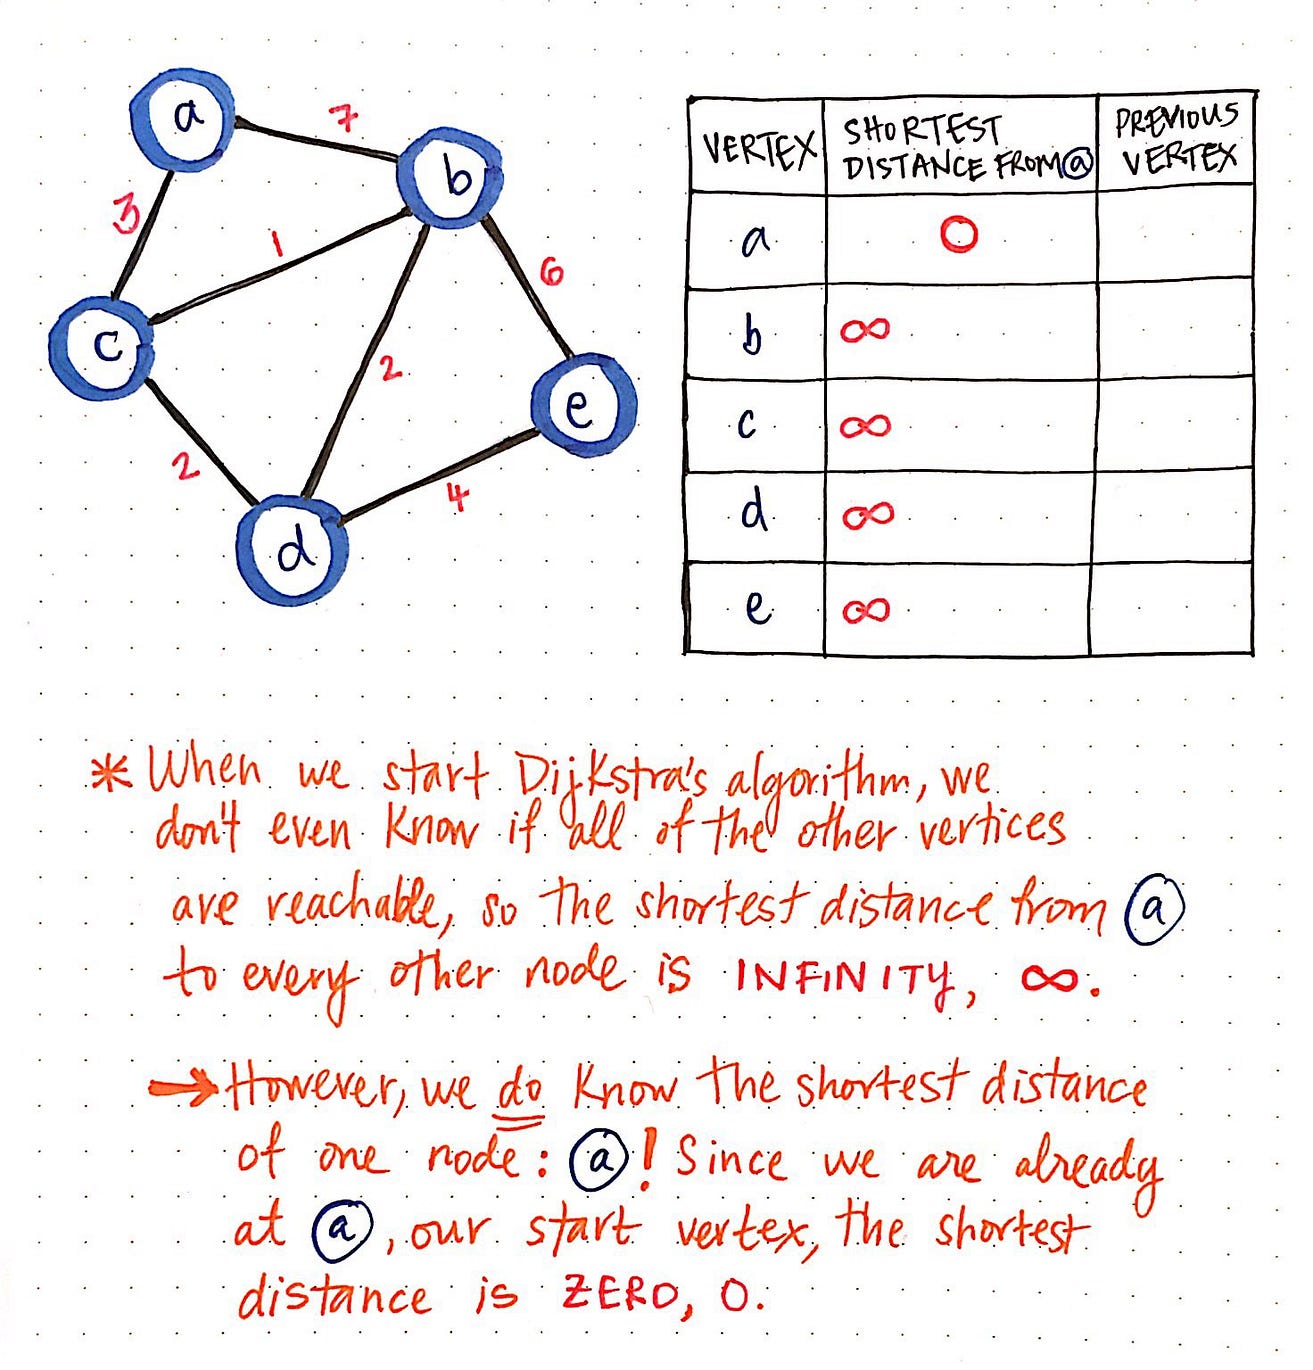 a
7
b
3
1
6
c
2
e
2
4
d
VERTEX
SHORTEST
DISTANCE FROM a
PREVIOUS
VERTEX
a 0
b ∞
c ∞
d ∞
e ∞
* When we start Dijkstra's algorithm, we
don't even know if all of the other vertices
are reachable, so the shortest distance from a
to every other node is INFINITY, ∞.
→ However, we do know the shortest distance
of one node: a! Since we are already
at a, our start vertex, the shortest
distance is ZERO, 0.